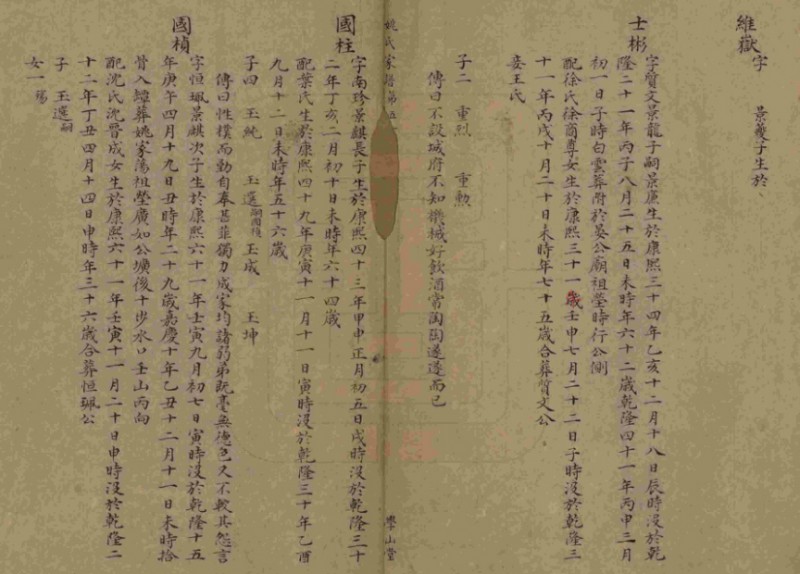 維嶽
字 景夔子生於
士彬
字質文景龍子嗣景廉生於康熙三十四年乙亥十二月十八日辰時沒於乾
隆二十一年丙子八月二十五日未時年六十二歲乾隆四十一年丙申三月
初一日子時白雲葬附於晏公廟祖塋時行公側
配徐氏徐商尊女生於康熙三十一歲壬申七月二十二日子時沒於乾隆三
十一年丙戌十月二十日未時年七十五歲合葬質文公
妾王氏
子二 重烈 重勳
傳曰不設城府不知機械好飲酒常陶陶遂遂而已
姚氏家譜第五
學山堂
國柱
字南珍景麒長子生於康熙四十三年甲申正月初五日戌時沒於乾隆三十
二年丁亥二月初十日未時年六十四歲
配葉氏生於康熙四十九年庚寅十一月十一日寅時沒於乾隆三十年乙酉
九月十二日未時年五十六歲
子四 玉純 玉選嗣國楨 玉成 玉坤
傳曰性樸而勤自奉甚菲獨力成家均諸弱弟既耄無德色又不較其怨言
國楨
字恒珮景麒次子生於康熙六十一年壬寅九月初七日寅時沒於乾隆十五
年庚午四月十九日丑時年二十九歲嘉慶十年乙丑十二月十一日未時拾
骨入罈葬姚家蕩祖塋廣如公壙後十步水口壬山丙向
配沈氏沈晉成女生於康熙六十一年壬寅十一月二十日申時沒於乾隆二
十二年丁丑四月十四日申時年三十六歲合葬恒珮公
子 玉選嗣
女一 殤